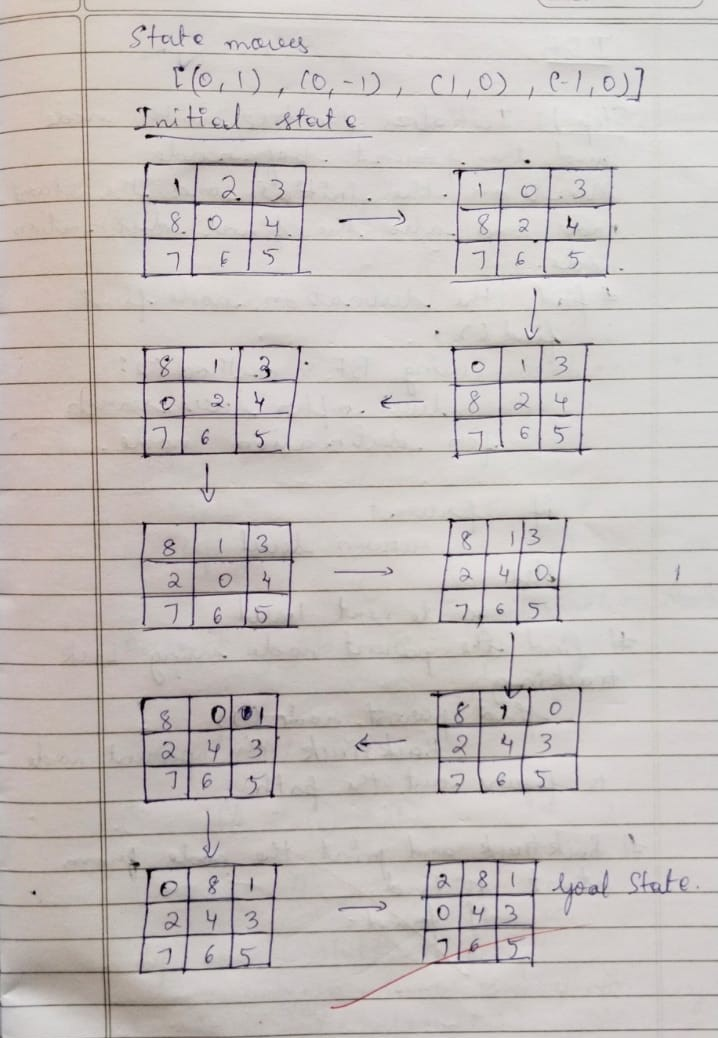 State moves
[(0, 1), (0, -1), (1, 0), (-1, 0)]
Initial state
1 2 3
8 0 4
7 6 5
1 0 3
8 2 4
7 6 5
0 1 3
8 2 4
7 6 5
8 1 3
0 2 4
7 6 5
8 1 3
2 0 4
7 6 5
8 1 3
2 4 0
7 6 5
8 1 0
2 4 3
7 6 5
8 0 1
2 4 3
7 6 5
0 8 1
2 4 3
7 6 5
2 8 1 Goal State.
0 4 3
7 6 5